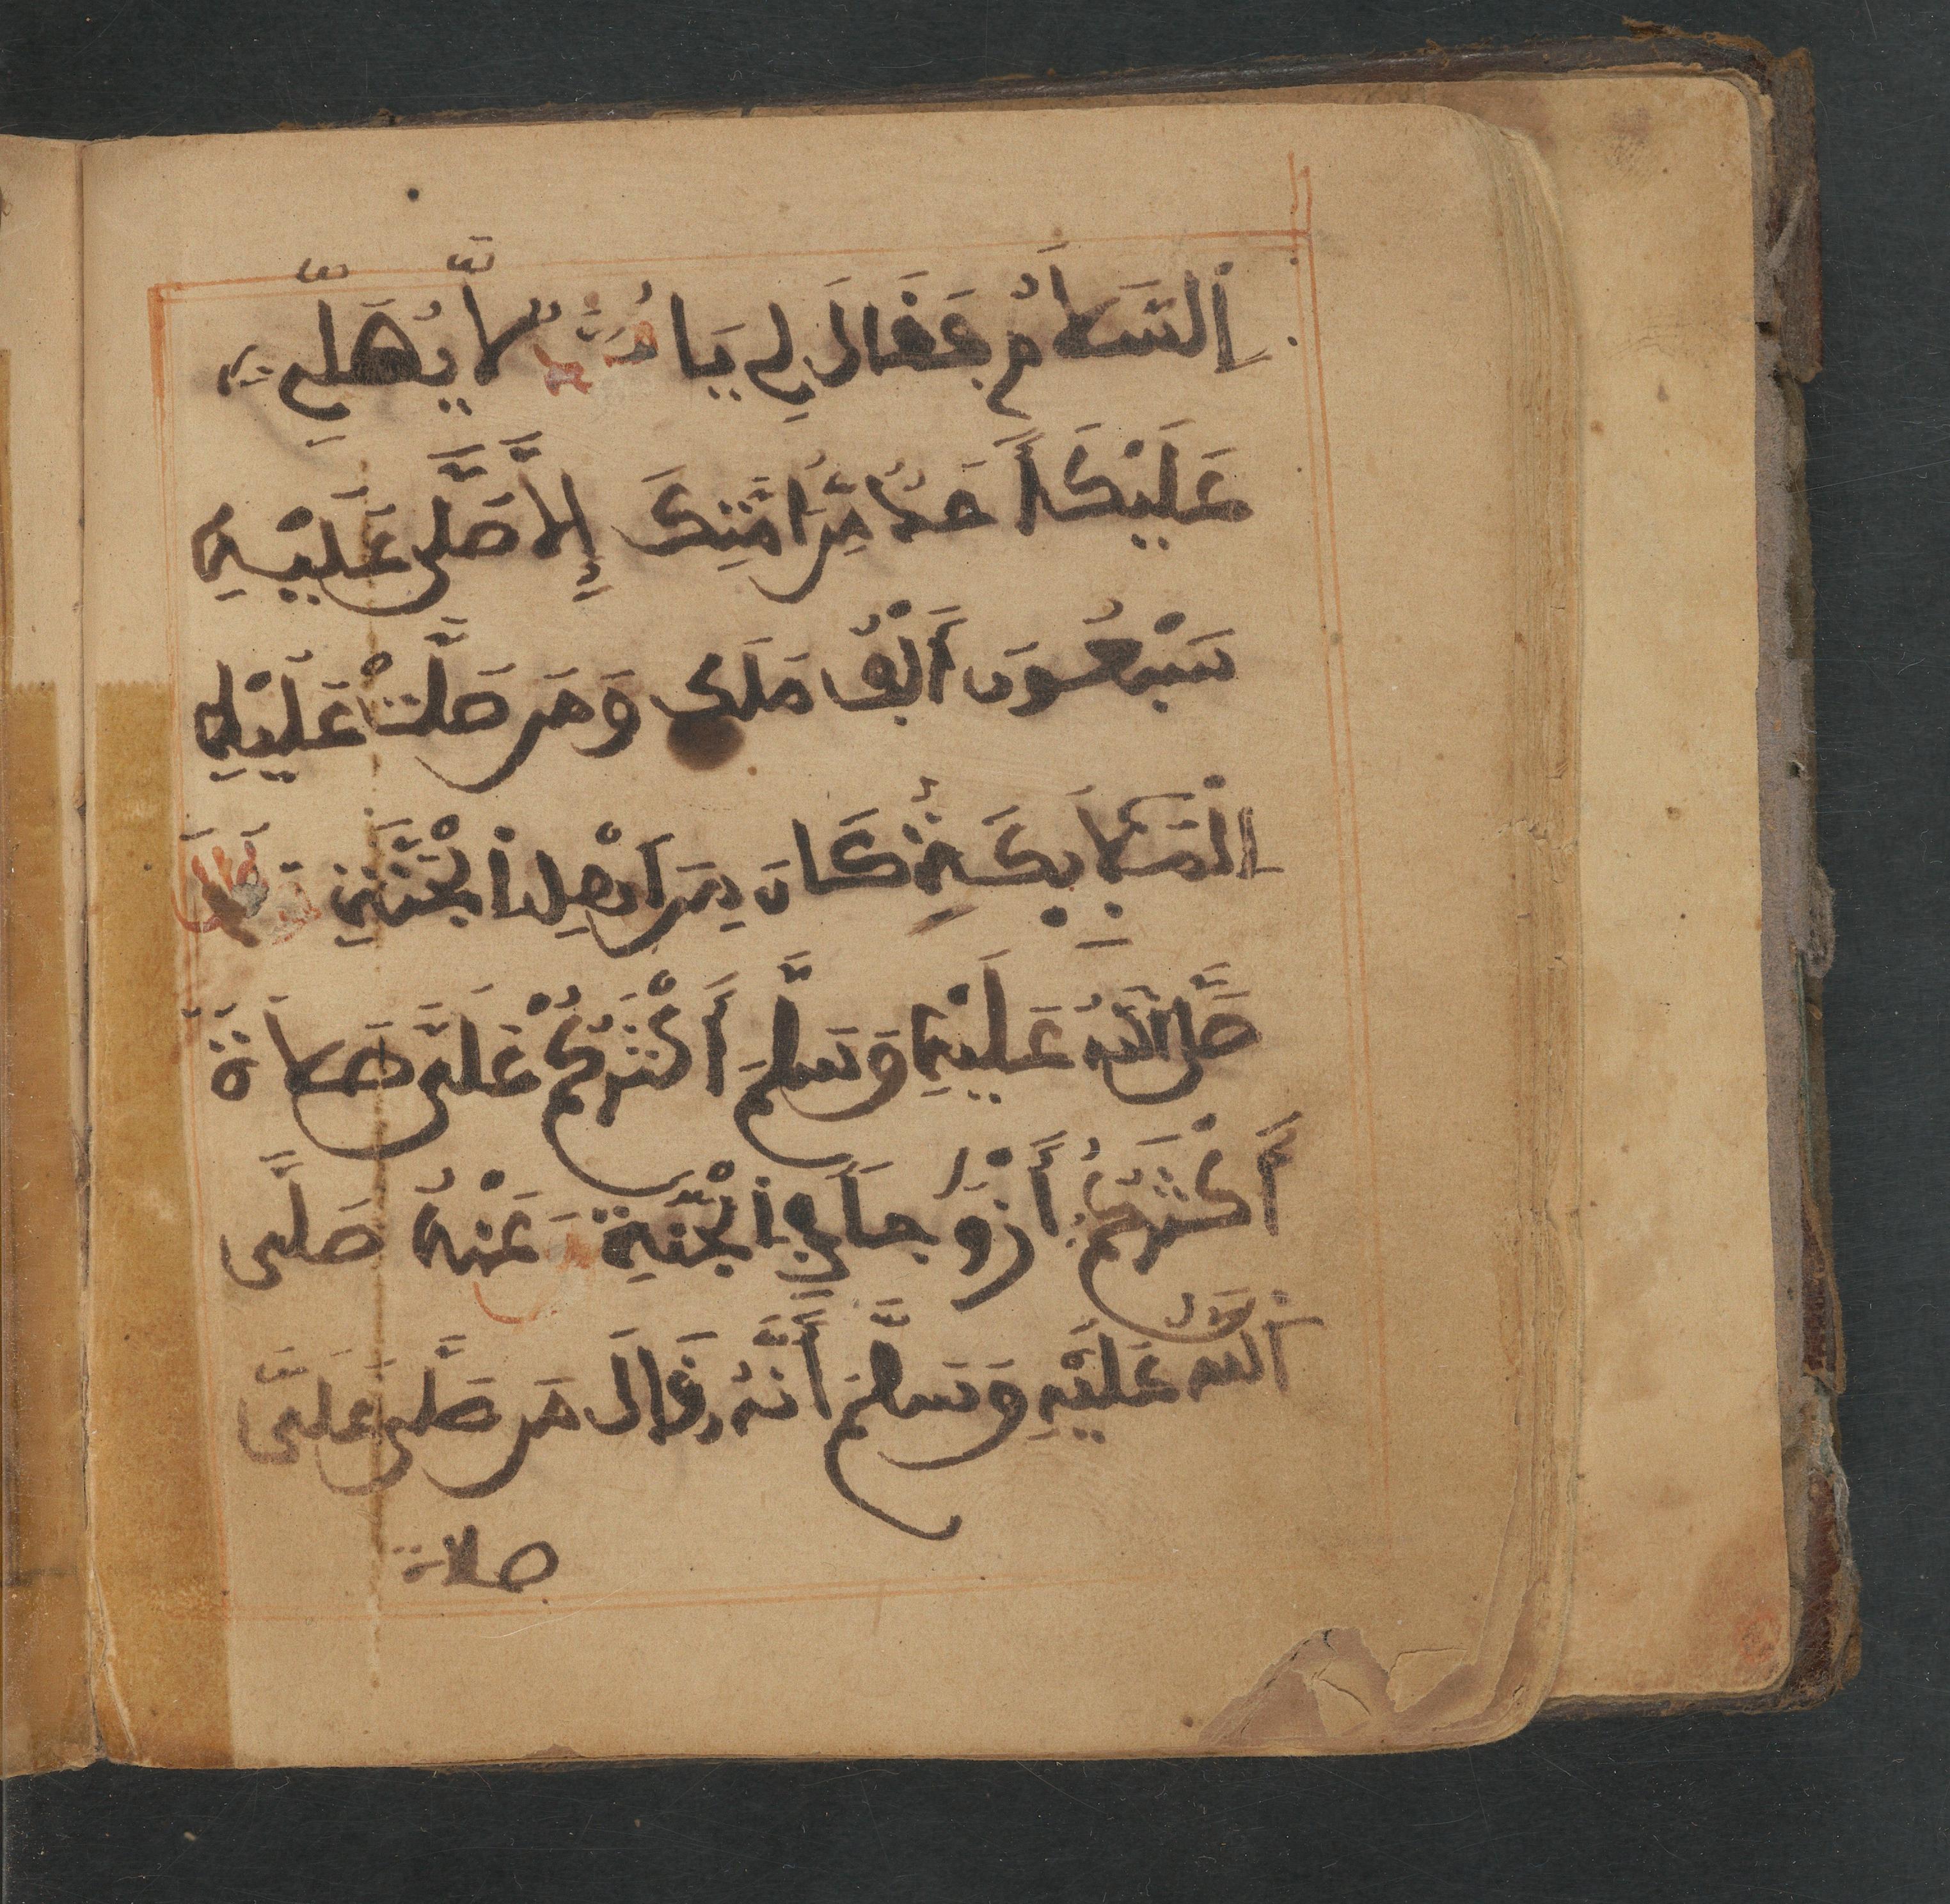 اِلسَّلَامُ فَقَالَ لِي يَا مُحَمَّدُ لَا يُصَلِّي
عَلَيْكَ أَحَدٌ مِّنْ أُمَّتِكَ إِلَّا صَلَّى عَلَيْهِ
سَبْعُونَ أَلْفَ مَلَكٍ وَمَن صَلَّتْ عَلَيْهِ
اِلْمَلَايِكَةُ كَانَ مِنَ اَهْلِ اِلْجَنَّةِ وَقَالَ
صَلَّى اللَّهُ عَلَيْهِ وَسَلَّمَ أَكْثَرُكُمْ عَلَيَّ صَلَاةً
أَكْثَرُكُمْ أَزْوَاجًا فِي اِلْجَنَّةِ وَعَنْهُ صَلَّى
اَللَّهُ عَلَيْهِ وَسَلَّمَ أَنَّهُ قَالَ مَن صَلَّى عَلَيَّ
صلاة